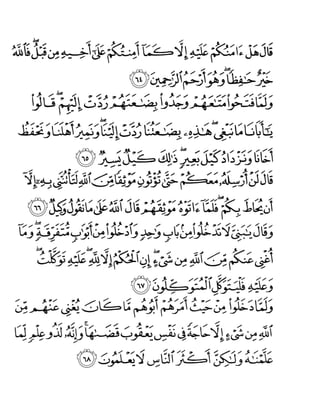 قَالَ هَلْ ءَامَنُكُمْ عَلَيْهِ إِلَّا كَمَآ أَمِنتُكُمْ عَلَىٰٓ أَخِيهِ مِن قَبْلُ ۖ فَٱللَّهُ
خَيْرٌ حَـٰفِظًا ۖ وَهُوَ أَرْحَمُ ٱلرَّٰحِمِينَ ٦٤
وَلَمَّا فَتَحُوا۟ مَتَـٰعَهُمْ وَجَدُوا۟ بِضَـٰعَتَهُمْ رُدَّتْ إِلَيْهِمْ ۖ قَالُوا۟
يَـٰٓأَبَانَا مَا نَبْغِى ۖ هَـٰذِهِۦ بِضَـٰعَتُنَا رُدَّتْ إِلَيْنَا ۖ وَنَمِيرُ أَهْلَنَا وَنَحْفَظُ
أَخَانَا وَنَزْدَادُ كَيْلَ بَعِيرٍ ۖ ذَٰلِكَ كَيْلٌ يَسِيرٌ ٦٥
قَالَ لَنْ أُرْسِلَهُۥ مَعَكُمْ حَتَّىٰ تُؤْتُونِ مَوْثِقًا مِّنَ ٱللَّهِ لَتَأْتُنَّنِى بِهِۦٓ إِلَّآ
أَن يُحَاطَ بِكُمْ ۖ فَلَمَّآ ءَاتَوْهُ مَوْثِقَهُمْ قَالَ ٱللَّهُ عَلَىٰ مَا نَقُولُ وَكِيلٌ ٦٦
وَقَالَ يَـٰبَنِىَّ لَا تَدْخُلُوا۟ مِنۢ بَابٍ وَٰحِدٍ وَٱدْخُلُوا۟ مِنْ أَبْوَٰبٍ مُّتَفَرِّقَةٍ ۖ وَمَآ
أُغْنِى عَنكُم مِّنَ ٱللَّهِ مِن شَىْءٍ ۖ إِنِ ٱلْحُكْمُ إِلَّا لِلَّهِ ۖ عَلَيْهِ تَوَكَّلْتُ ۖ
وَعَلَيْهِ فَلْيَتَوَكَّلِ ٱلْمُتَوَكِّلُونَ ٦٧
وَلَمَّا دَخَلُوا۟ مِنْ حَيْثُ أَمَرَهُمْ أَبُوهُم مَّا كَانَ يُغْنِى عَنْهُم مِّنَ
ٱللَّهِ مِن شَىْءٍ إِلَّا حَاجَةً فِى نَفْسِ يَعْقُوبَ قَضَىٰهَا ۚ وَإِنَّهُۥ لَذُو عِلْمٍ لِّمَا
عَلَّمْنَـٰهُ وَلَـٰكِنَّ أَكْثَرَ ٱلنَّاسِ لَا يَعْلَمُونَ ٦٨